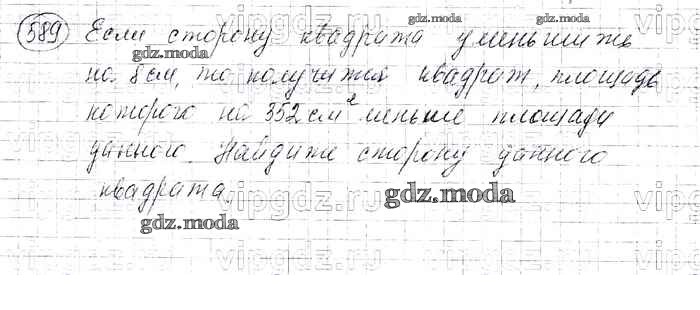 589 Если сторону квадрата уменьшить
на 8 см, то получится квадрат, площадь
которого на 352 см² меньше площади
данного. Найдите сторону данного
квадрата.
gdz.moda
gdz.moda
gdz.moda
gdz.moda
gdz.moda
gdz.moda
vipgdz.ru
vipgdz.ru
vipgdz.ru